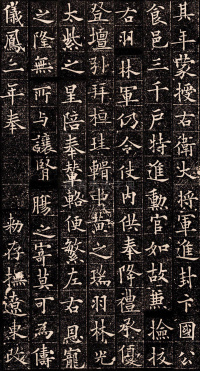 其年蒙授右衛大將軍進封卞國公
食邑三千戶特進勳官如故兼撿校
右羽林軍仍令仗內供奉降禮承優
登壇引拜桓珪輯中黃之瑞羽林光
太紫之星陪奉輦輅便繁左右恩寵
之隆無所與讓腎腸之寄莫可為儔
儀鳳二年奉 勅存撫遼東改